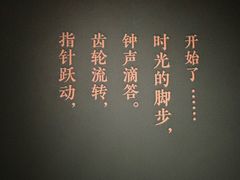 指针跃动，
齿轮流转，
钟声滴答。
时光的脚步，
开始了……